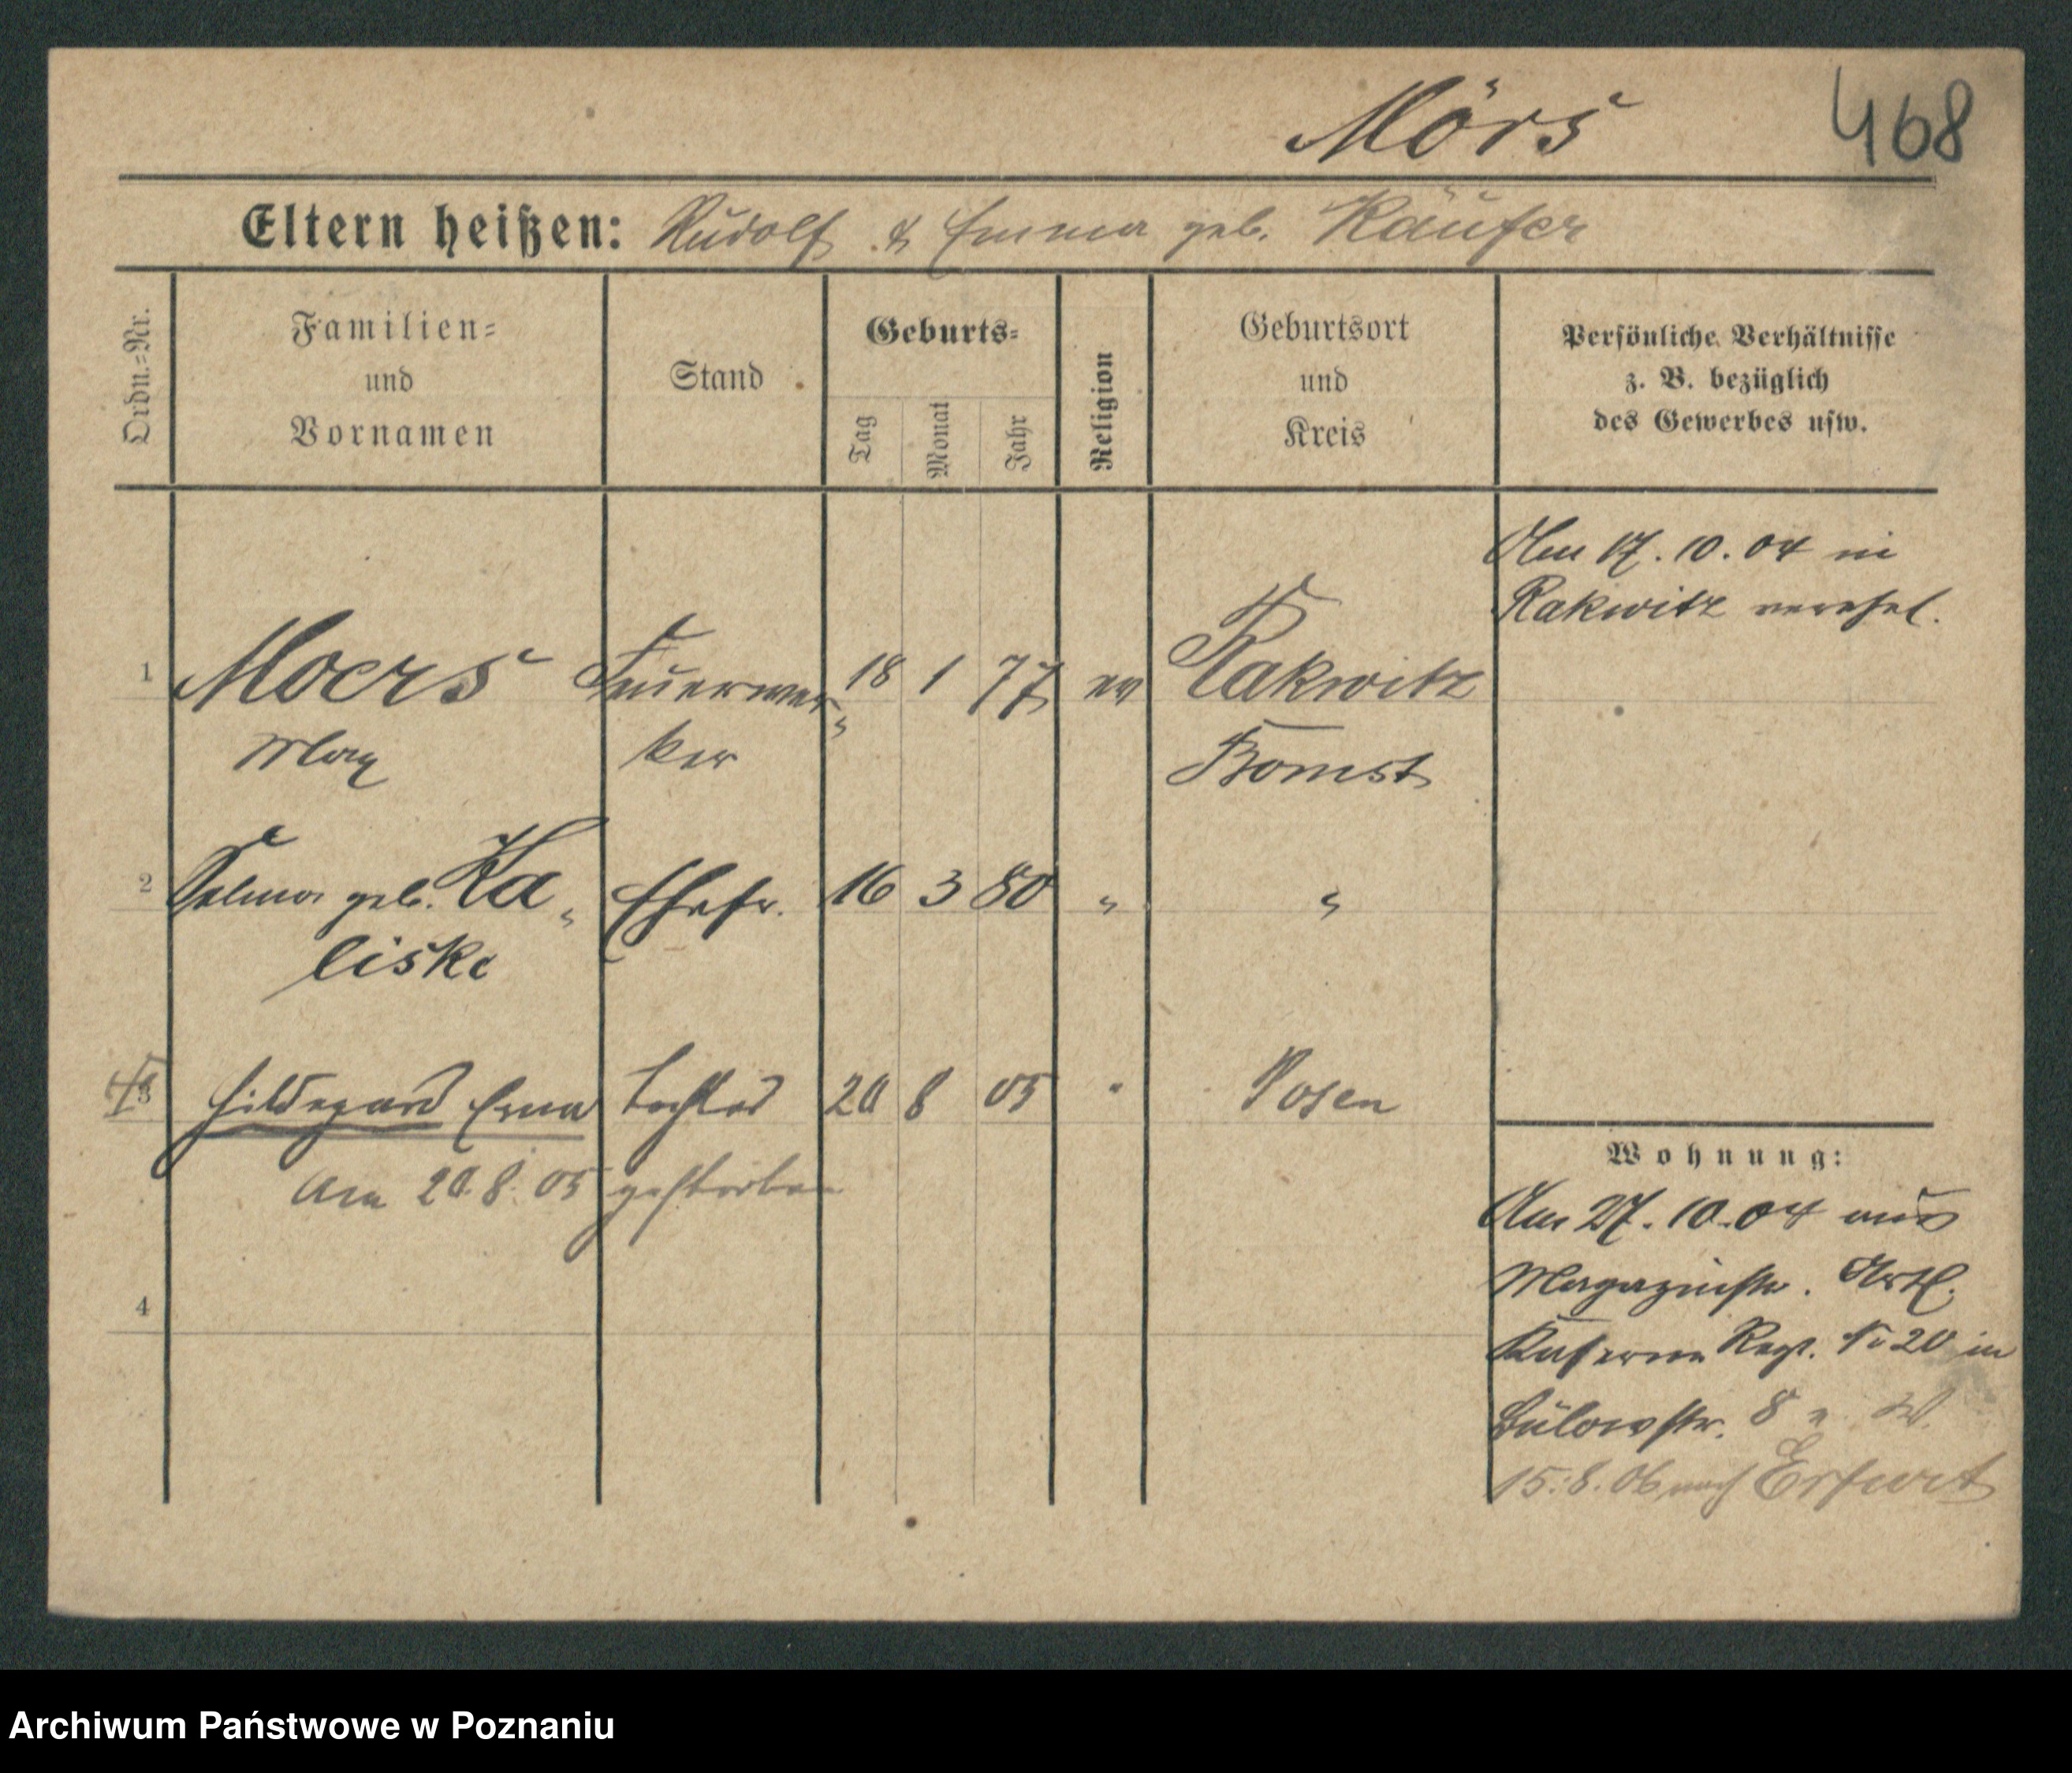 Mörs
468
Eltern heißen: Rudolf & Emma geb. Käufer
Ordn.=Nr.
Familien=
und
Vornamen
Stand
Geburts=
Tag
Monat
Jahr
Religion
Geburtsort
und
Kreis
Persönliche Verhältnisse
z. B. bezüglich
des Gewerbes usw.
Am 17. 10. 04 in
Rakwitz verehel.
1 Moers Feuerwer= 18 1 77 ev Rakwitz
Max ker Bomst
2 Selma geb. Ka= Ehefr. 16 3 80 " "
liske
3 Hildegard Erna Tochter 20 8 05 " Posen
Am 20. 8. 05 gestorben
4
Wohnung:
Am 27. 10. 04 aus
Magazinstr. Artl.
Kaserne Regt. No 20 in
Bülowstr. 8
15. 8. 06 nach Erfurt
Archiwum Państwowe w Poznaniu